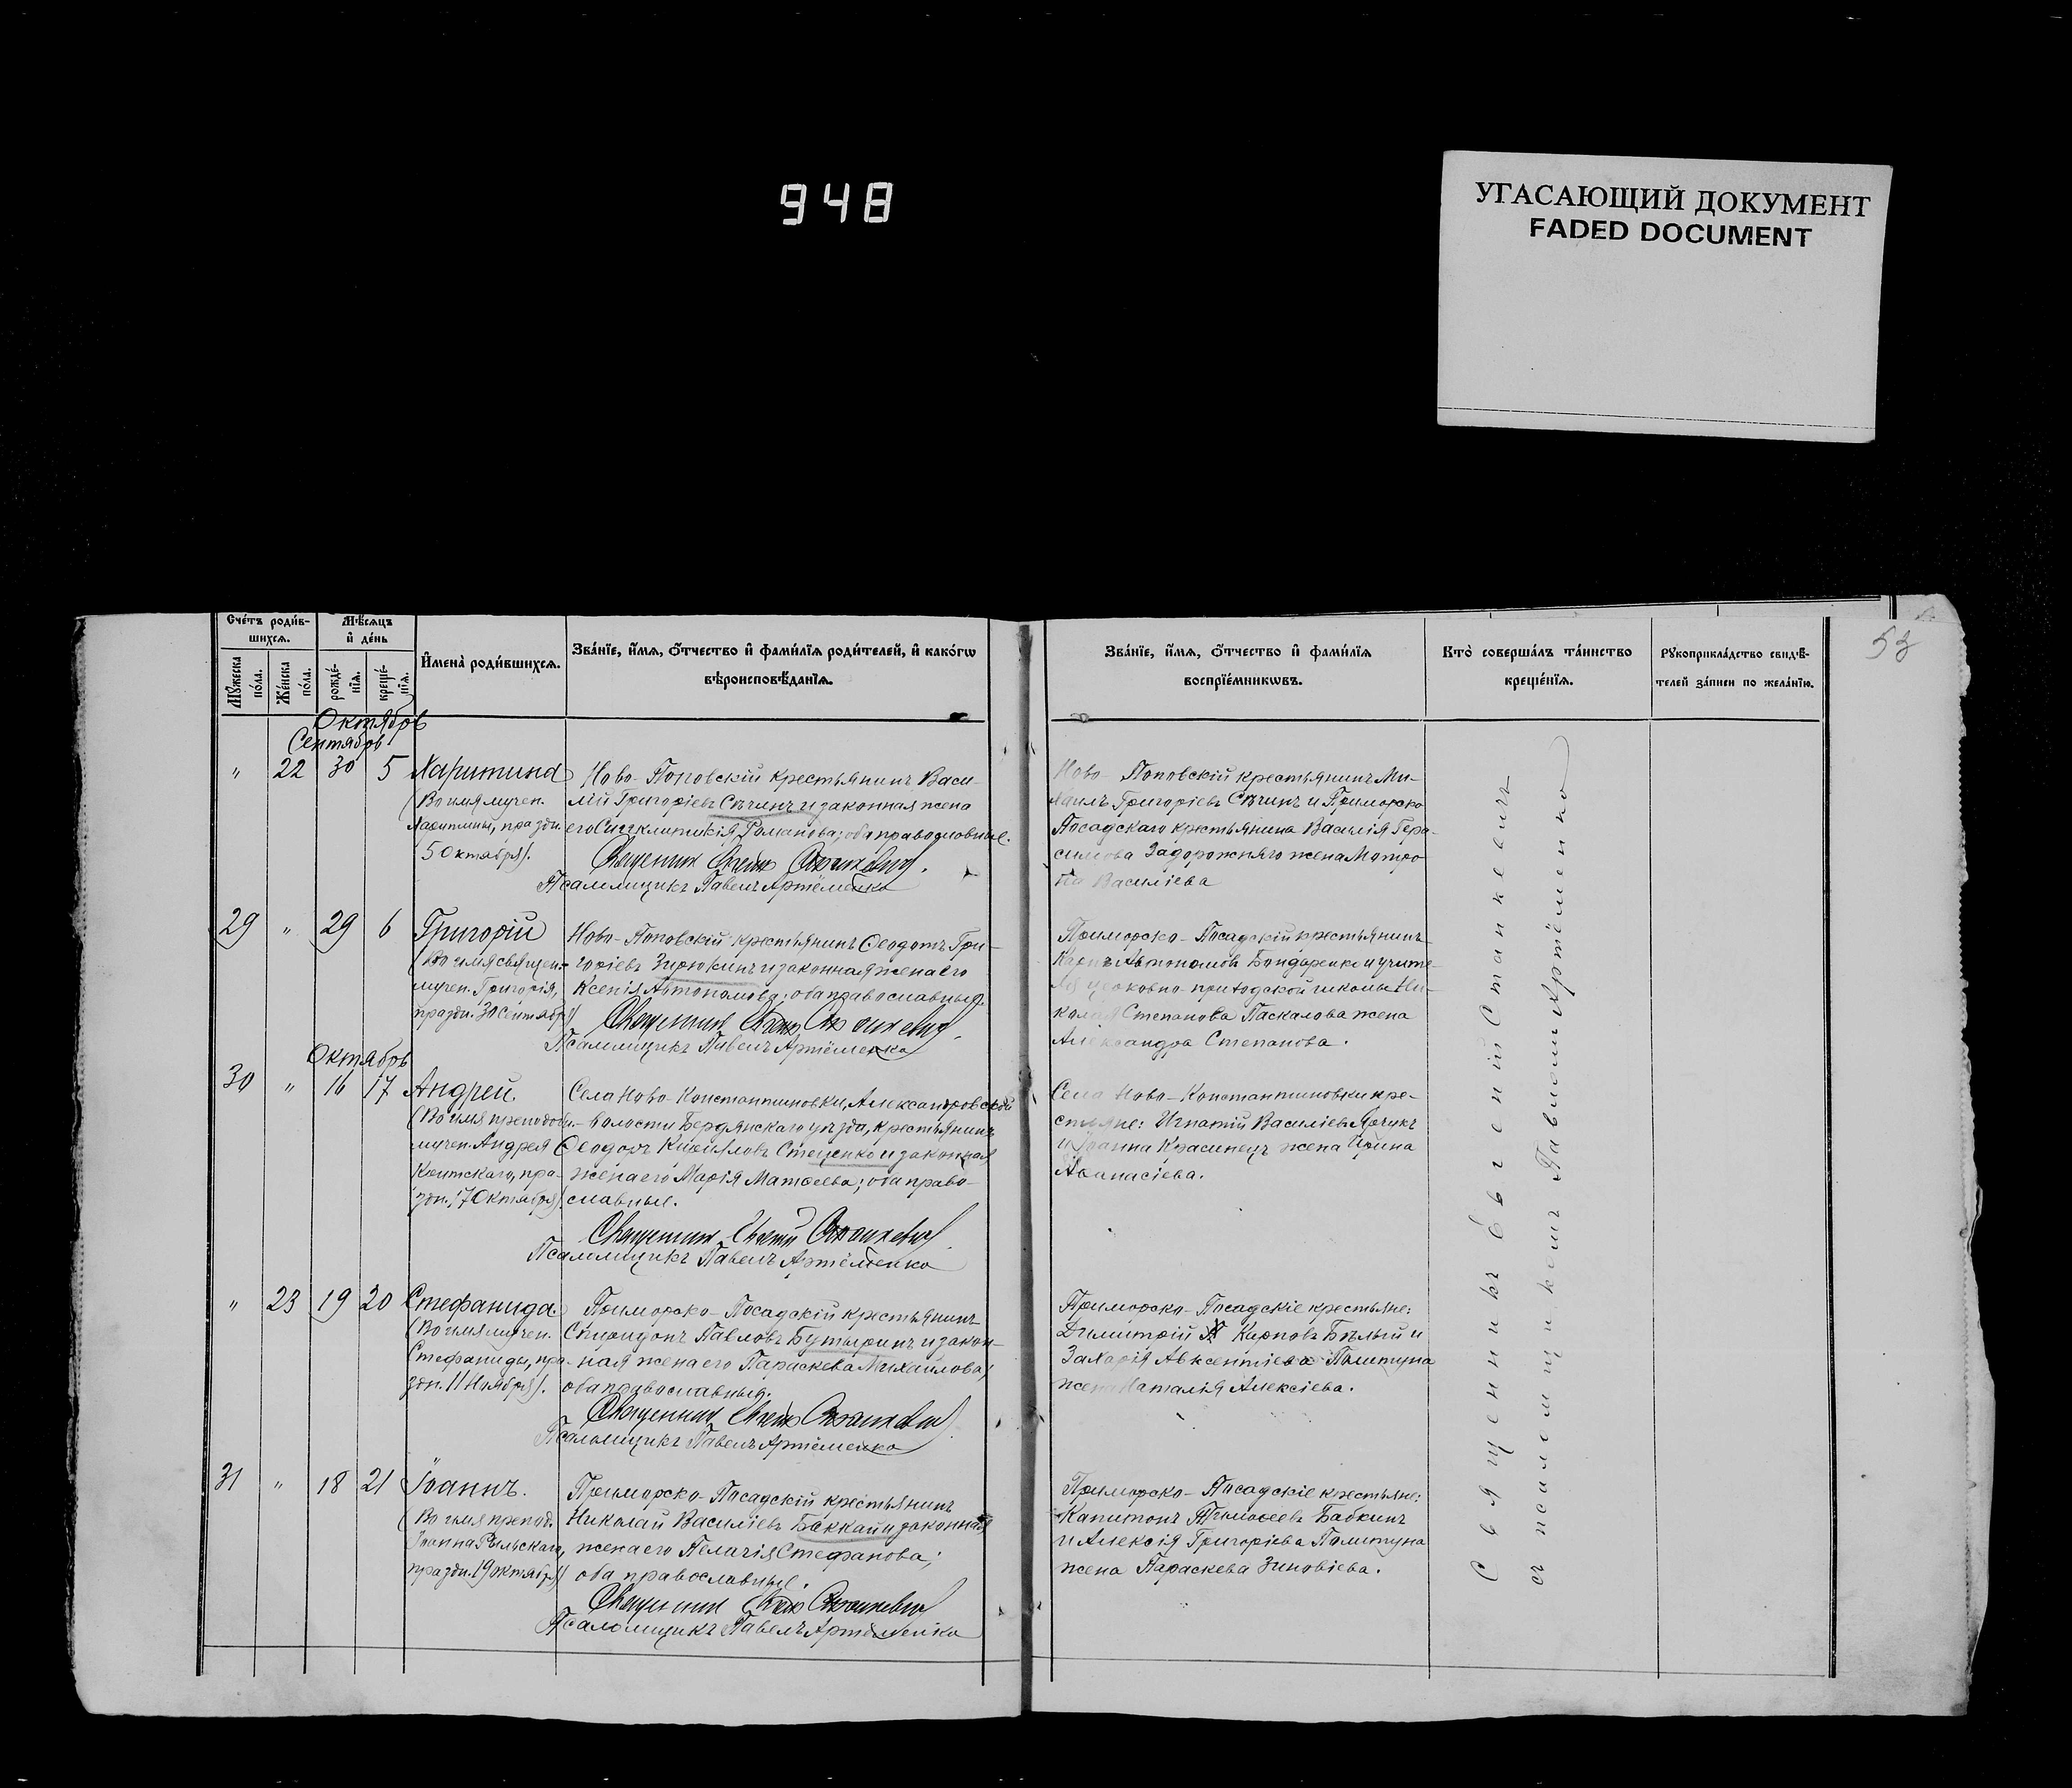 948
УГАСАЮЩИЙ ДОКУМЕНТ
FADED DOCUMENT
53
Счетъ родив-
шихся.
Мѣсяцъ
и день
Мужеска
пола.
Женска
пола.
рожде-
нія.
креще-
нія.
Имена родившихся.
Званіе, имя, отчество и фамилія родителей, и какогѡ
вѣроисповѣданія.
Званіе, имя, отчество и фамилія
воспріемникѡвъ.
Кто совершалъ таинство
крещенія.
Рукоприкладство свидѣ-
телей записи по желанію.
Октябрь
Сентябрь
" 22 30 5 Харитина
(Во имя мучен.
Харитины, праздн.
5 Октября).
Ново-Поповскій крестьянинъ Васи-
лій Григоріевъ Сѣчинъ и законная жена
его Синклитикія Романова; оба православные.
Священникъ Евгеній Станкевичъ.
Псаломщикъ Павелъ Артёменко
Ново-Поповскій крестьянинъ Ми-
хаилъ Григоріевъ Сѣчинъ и Приморско
Посадскаго крестьянина Василія Гера-
симова Задорожняго жена Матро-
на Василіева
29 " 29 6 Григорій
(Во имя священ.-
мучен. Григорія,
праздн. 30 Сентябр.)
Ново-Поповскій крестьянинъ Ѳеодотъ Гри-
горіевъ Зирюкинъ и законная жена его
Ксенія Автономова; оба православные.
Священникъ Евгеній Станкевичъ.
Псаломщикъ Павелъ Артёменко
Приморско-Посадскій крестьянинъ
Карпъ Автономовъ Бондаренко и учите-
ля церковно-приходской школы Ни-
колая Степанова Паскалова жена
Александра Степанова.
Октябрь
30 " 16 17 Андрей.
(Во имя преподобн.-
мучен. Андрея
Критскаго, пра-
здн. 17 Октября)
Села Ново-Константиновки, Александровской
волости Бердянскаго уѣзда, крестьянинъ
Ѳеодоръ Кирилловъ Стеценко и законная
жена его Марія Матѳеева; оба право-
славные.
Священникъ Евгеній Станкевичъ.
Псаломщикъ Павелъ Артёменко
Села Ново-Константиновки кре-
стьяне: Игнатій Василіевъ Ярчукъ
и Іоанна Красинецъ жена Ирина
Аѳанасіева.
" 23 19 20 Стефанида.
(Во имя мучен.
Стефаниды, пра-
здн. 11 Ноября).
Приморско-Посадскій крестьянинъ
Спиридонъ Павловъ Бутыринъ и закон-
ная жена его Параскева Михайлова;
оба православные.
Священникъ Евгеній Станкевичъ
Псаломщикъ Павелъ Артёменко
Приморско-Посадскіе крестьяне:
Димитрій Карповъ Бѣлый и
Захарія Авксентіева Полтупа
жена Наталія Алексіева.
31 " 18 21 Іоаннъ.
(Во имя препод.
Іоанна Рыльскаго,
праздн. 19 октябр.)
Приморско-Посадскій крестьянинъ
Николай Василіевъ Баккай и законная
жена его Пелагія Стефанова;
оба православные.
Священникъ Евгеній Станкевичъ
Псаломщикъ Павелъ Артёменко
Приморско-Посадскіе крестьяне:
Капитонъ Тимоѳеевъ Бабкинъ
и Алексія Григоріева Полтупа
жена Параскева Зиновіева.
Священникъ Евгеній Станкевичъ
съ псаломщикомъ Павломъ Артёменко